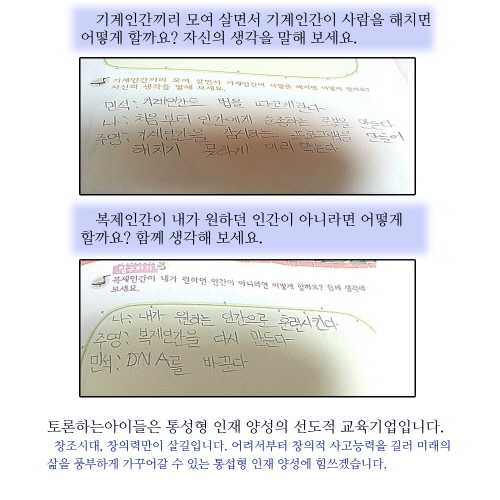 기계인간끼리 모여 살면서 기계인간이 사람을 해치면
어떻게 할까요? 자신의 생각을 말해 보세요.
기계인간끼리 모여 살면서 기계인간이 사람을 해치면 어떻게 할까요?
자신의 생각을 말해 보세요.
민석: 기계인간도 법을 따르게한다
나: 처음부터 인간에게 순종하는 로봇을 만든다
주영: 기계인간을 감시하는 프로그램을 만들어
해치지 못하게 미리 막는다
복제인간이 내가 원하던 인간이 아니라면 어떻게
할까요? 함께 생각해 보세요.
복제인간이 내가 원하던 인간이 아니라면 어떻게 할까요? 함께 생각해
보세요.
나: 내가 원하는 인간으로 훈련시킨다
주영: 복제인간을 다시 만든다
민석: DNA를 바꾼다
토론하는아이들은 통성형 인재 양성의 선도적 교육기업입니다.
창조시대, 창의력만이 살길입니다. 어려서부터 창의적 사고능력을 길러 미래의
삶을 풍부하게 가꾸어갈 수 있는 통섭형 인재 양성에 힘쓰겠습니다.